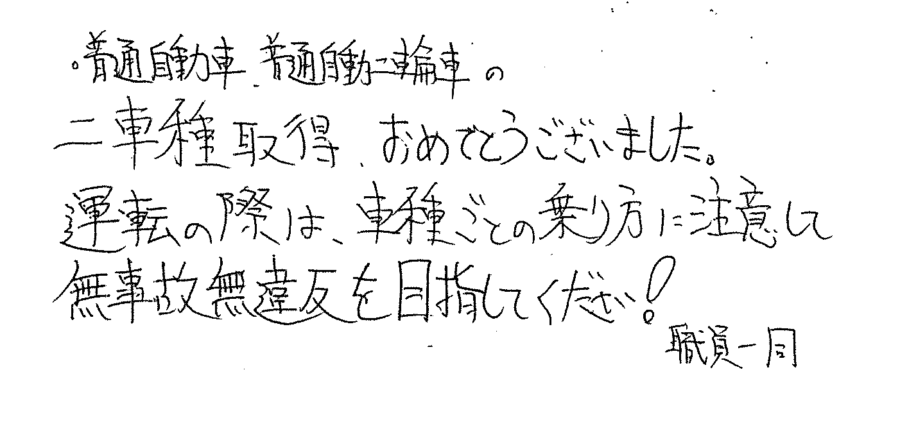 ・普通自動車、普通自動二輪車の
二車種取得、おめでとうございました。
運転の際は、車種ごとの乗り方に注意して
無事故無違反を目指してください!
職員一同